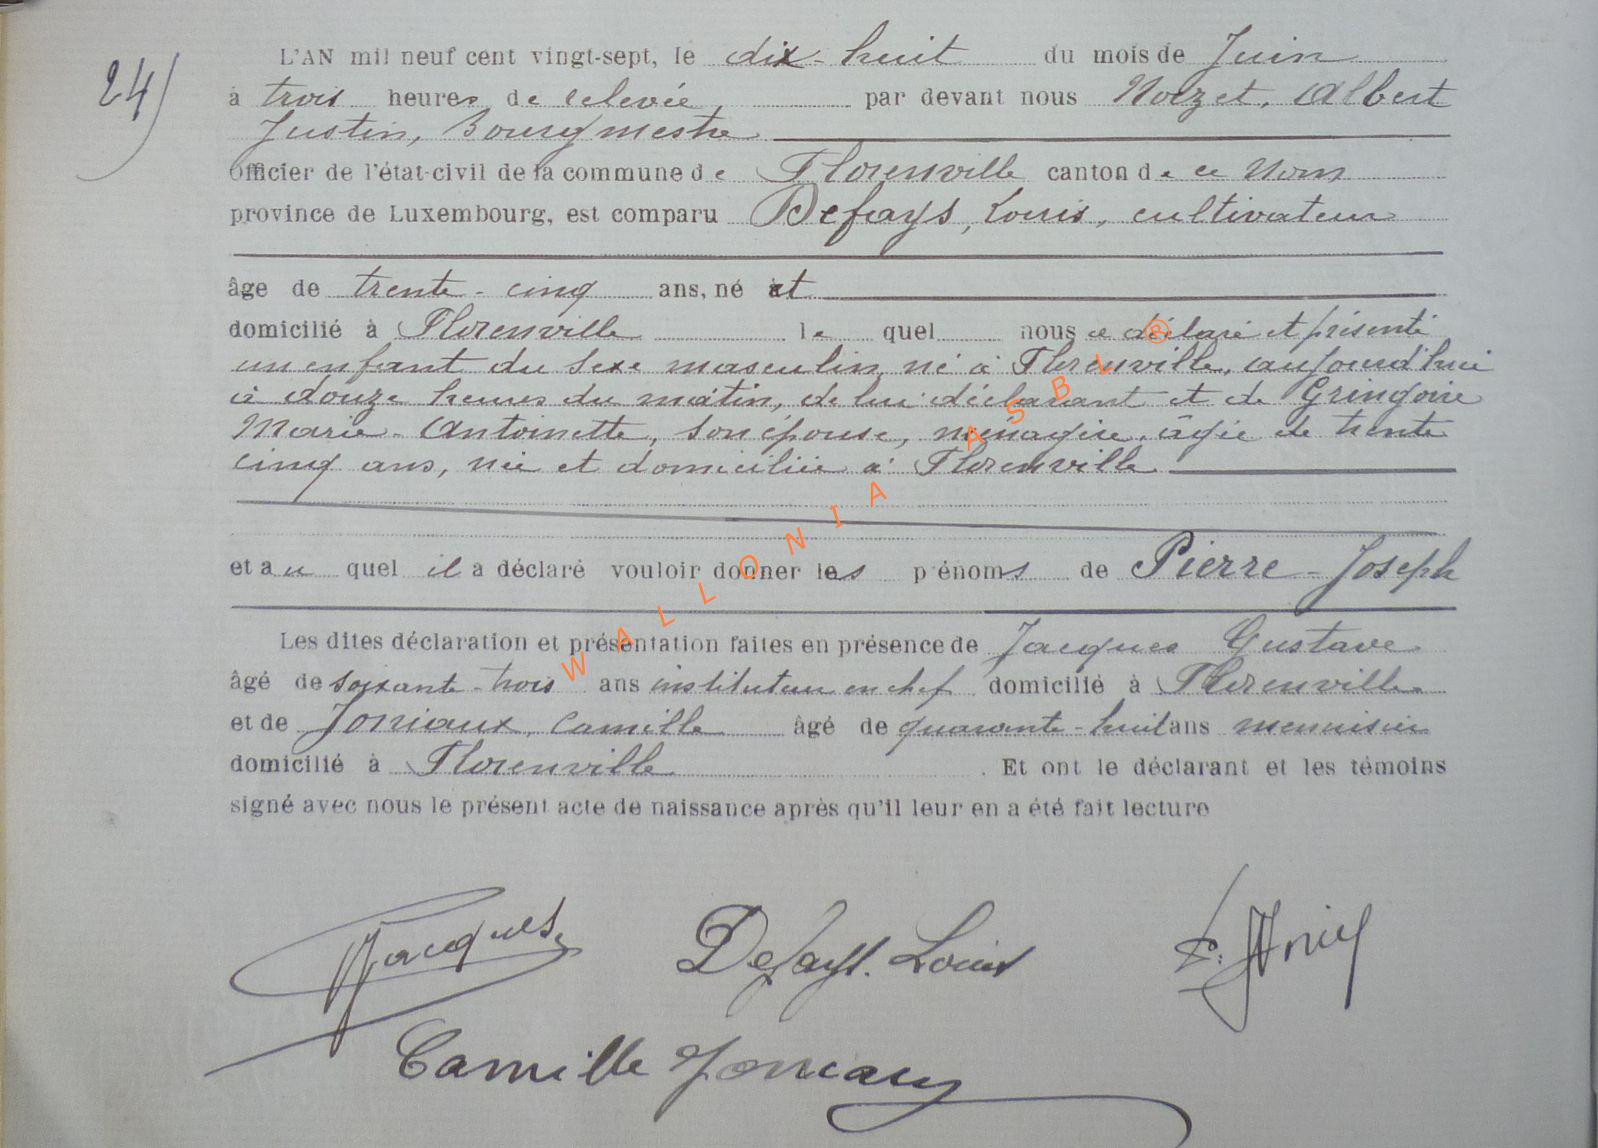 24)
L'AN mil neuf cent vingt-sept, le dix-huit du mois de Juin
à trois heures de relevée, par devant nous Nozet, Albert
Justin, Bourgmestre
Officier de l'état-civil de la commune de Florenville canton de ce nom
province de Luxembourg, est comparu Defays, Louis, cultivateur
âge de trente-cinq ans, né et
domicilié à Florenville lequel nous a déclaré et présenté
un enfant du sexe masculin, né à Florenville, aujourd'hui
à douze heures du matin, de lui déclarant et de Gringoire
Marie-Antoinette, son épouse, ménagère, âgée de trente
cinq ans, née et domiciliée à Florenville
et au quel il a déclaré vouloir donner les prénoms de Pierre-Joseph
Les dites déclaration et présentation faites en présence de Jacques Gustave
âgé de soixante-trois ans instituteur en chef domicilié à Florenville
et de Joniaux, Camille âgé de quarante-huit ans menuisier
domicilié à Florenville. Et ont le déclarant et les témoins
signé avec nous le présent acte de naissance après qu'il leur en a été fait lecture
Jacques Defays. Louis
Camille Joniaux
WALLONIA ASBL ®